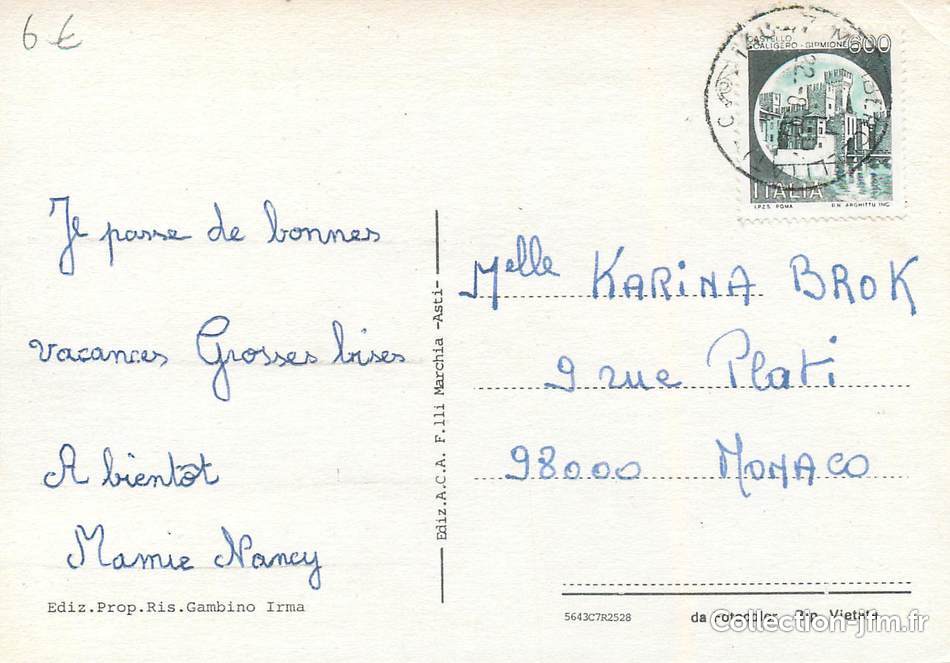 6 €
CASTELLO
SCALIGERO - SIRMIONE 600
ITALIA
I.P.Z.S. ROMA E.N. ARGHITTU INC.
Je passe de bonnes
vacances Grosses bises
A bientôt
Mamie Nancy
Ediz.Prop.Ris.Gambino Irma
Ediz.A.C.A. F.lli Marchia -Asti-
Melle KARINA BROK
9 rue Plati
98000 MONACO
5643C7R2528
da rotocolor Rip. Vietata
Collection-jfm.fr